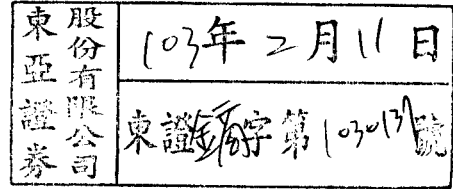 東亞證券
股份有限公司
103年2月11日
東證 字第1030137號